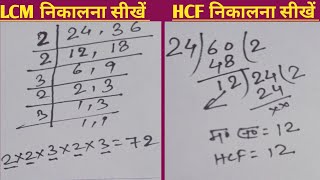 LCM निकालना सीखें
2 | 24, 36
2 | 12, 18
3 | 6, 9
2 | 2, 3
3 | 1, 3
1, 1
2×2×3×2×3=72
HCF निकालना सीखें
24)60(2
48
12)24(2
24
××
म० स०=12
HCF=12